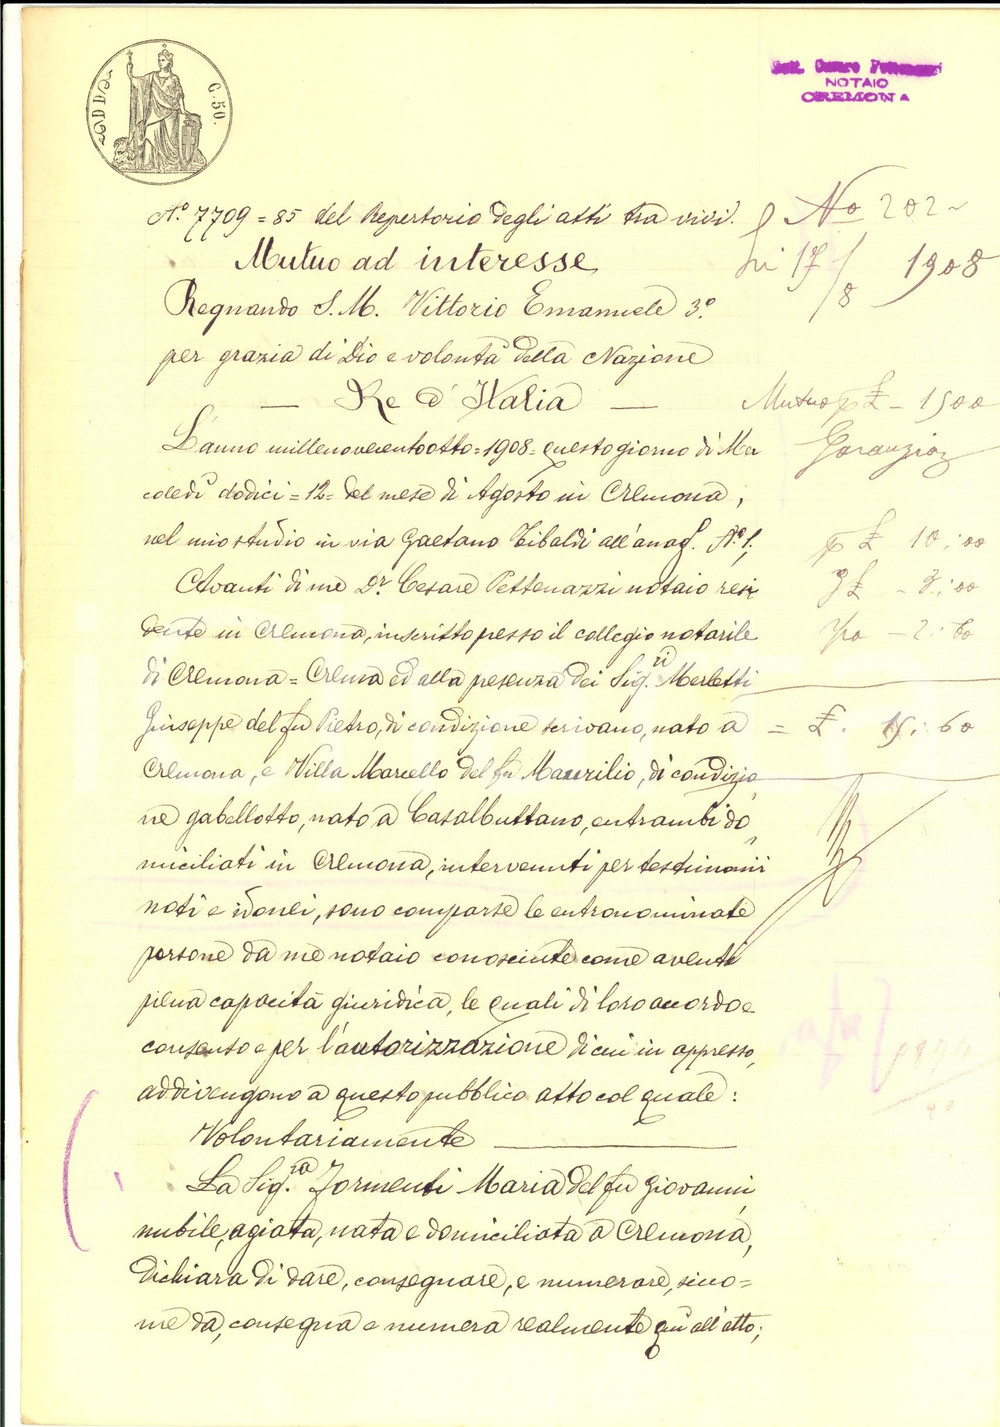 C. 50.
NOTAIO
CREMONA
N.° 7709 = 85 del Repertorio degli atti tra vivi.
Mutuo ad interesse
Regnando S. M. Vittorio Emanuele 3.°
per grazia di Dio e volontà della Nazione
— Re d'Italia —
L'anno millenovecentootto = 1908 = questo giorno di Mer
coledì dodici = 12 = del mese di Agosto in Cremona,
nel mio studio in via Gaetano Tibaldi all'anag. N.° 1;
Avanti di me D.r Cesare Pettenazzi notaio resi
dente in Cremona, inscritto presso il collegio notarile
di Cremona = Crema ed alla presenza dei Sig.ri Merletti
Giuseppe del fu Pietro, di condizione scrivano, nato a
Cremona, e Villa Marcello del fu Maurilio, di condizio
ne gabellotto, nato a Casalbuttano, entrambi do
miciliati in Cremona, intervenuti per testimonii
noti e idonei, sono comparse le entronominate
persone da me notaio conosciute come aventi
piena capacità giuridica, le quali di loro accordo e
consento e per l'autorizzazione di cui in appresso,
addivengono a questo pubblico atto col quale:
Volontariamente
La Sig.ra Tormenti Maria del fu Giovanni,
nubile, agiata, nata e domiciliata a Cremona,
dichiara di dare, consegnare, e numerare, sicco=
me dà, consegna e numera realmente qui all'atto;
N.o 202
li 17/8 1908
Mutuo p £ - 1500
p £ 10:00
= £. 15:60